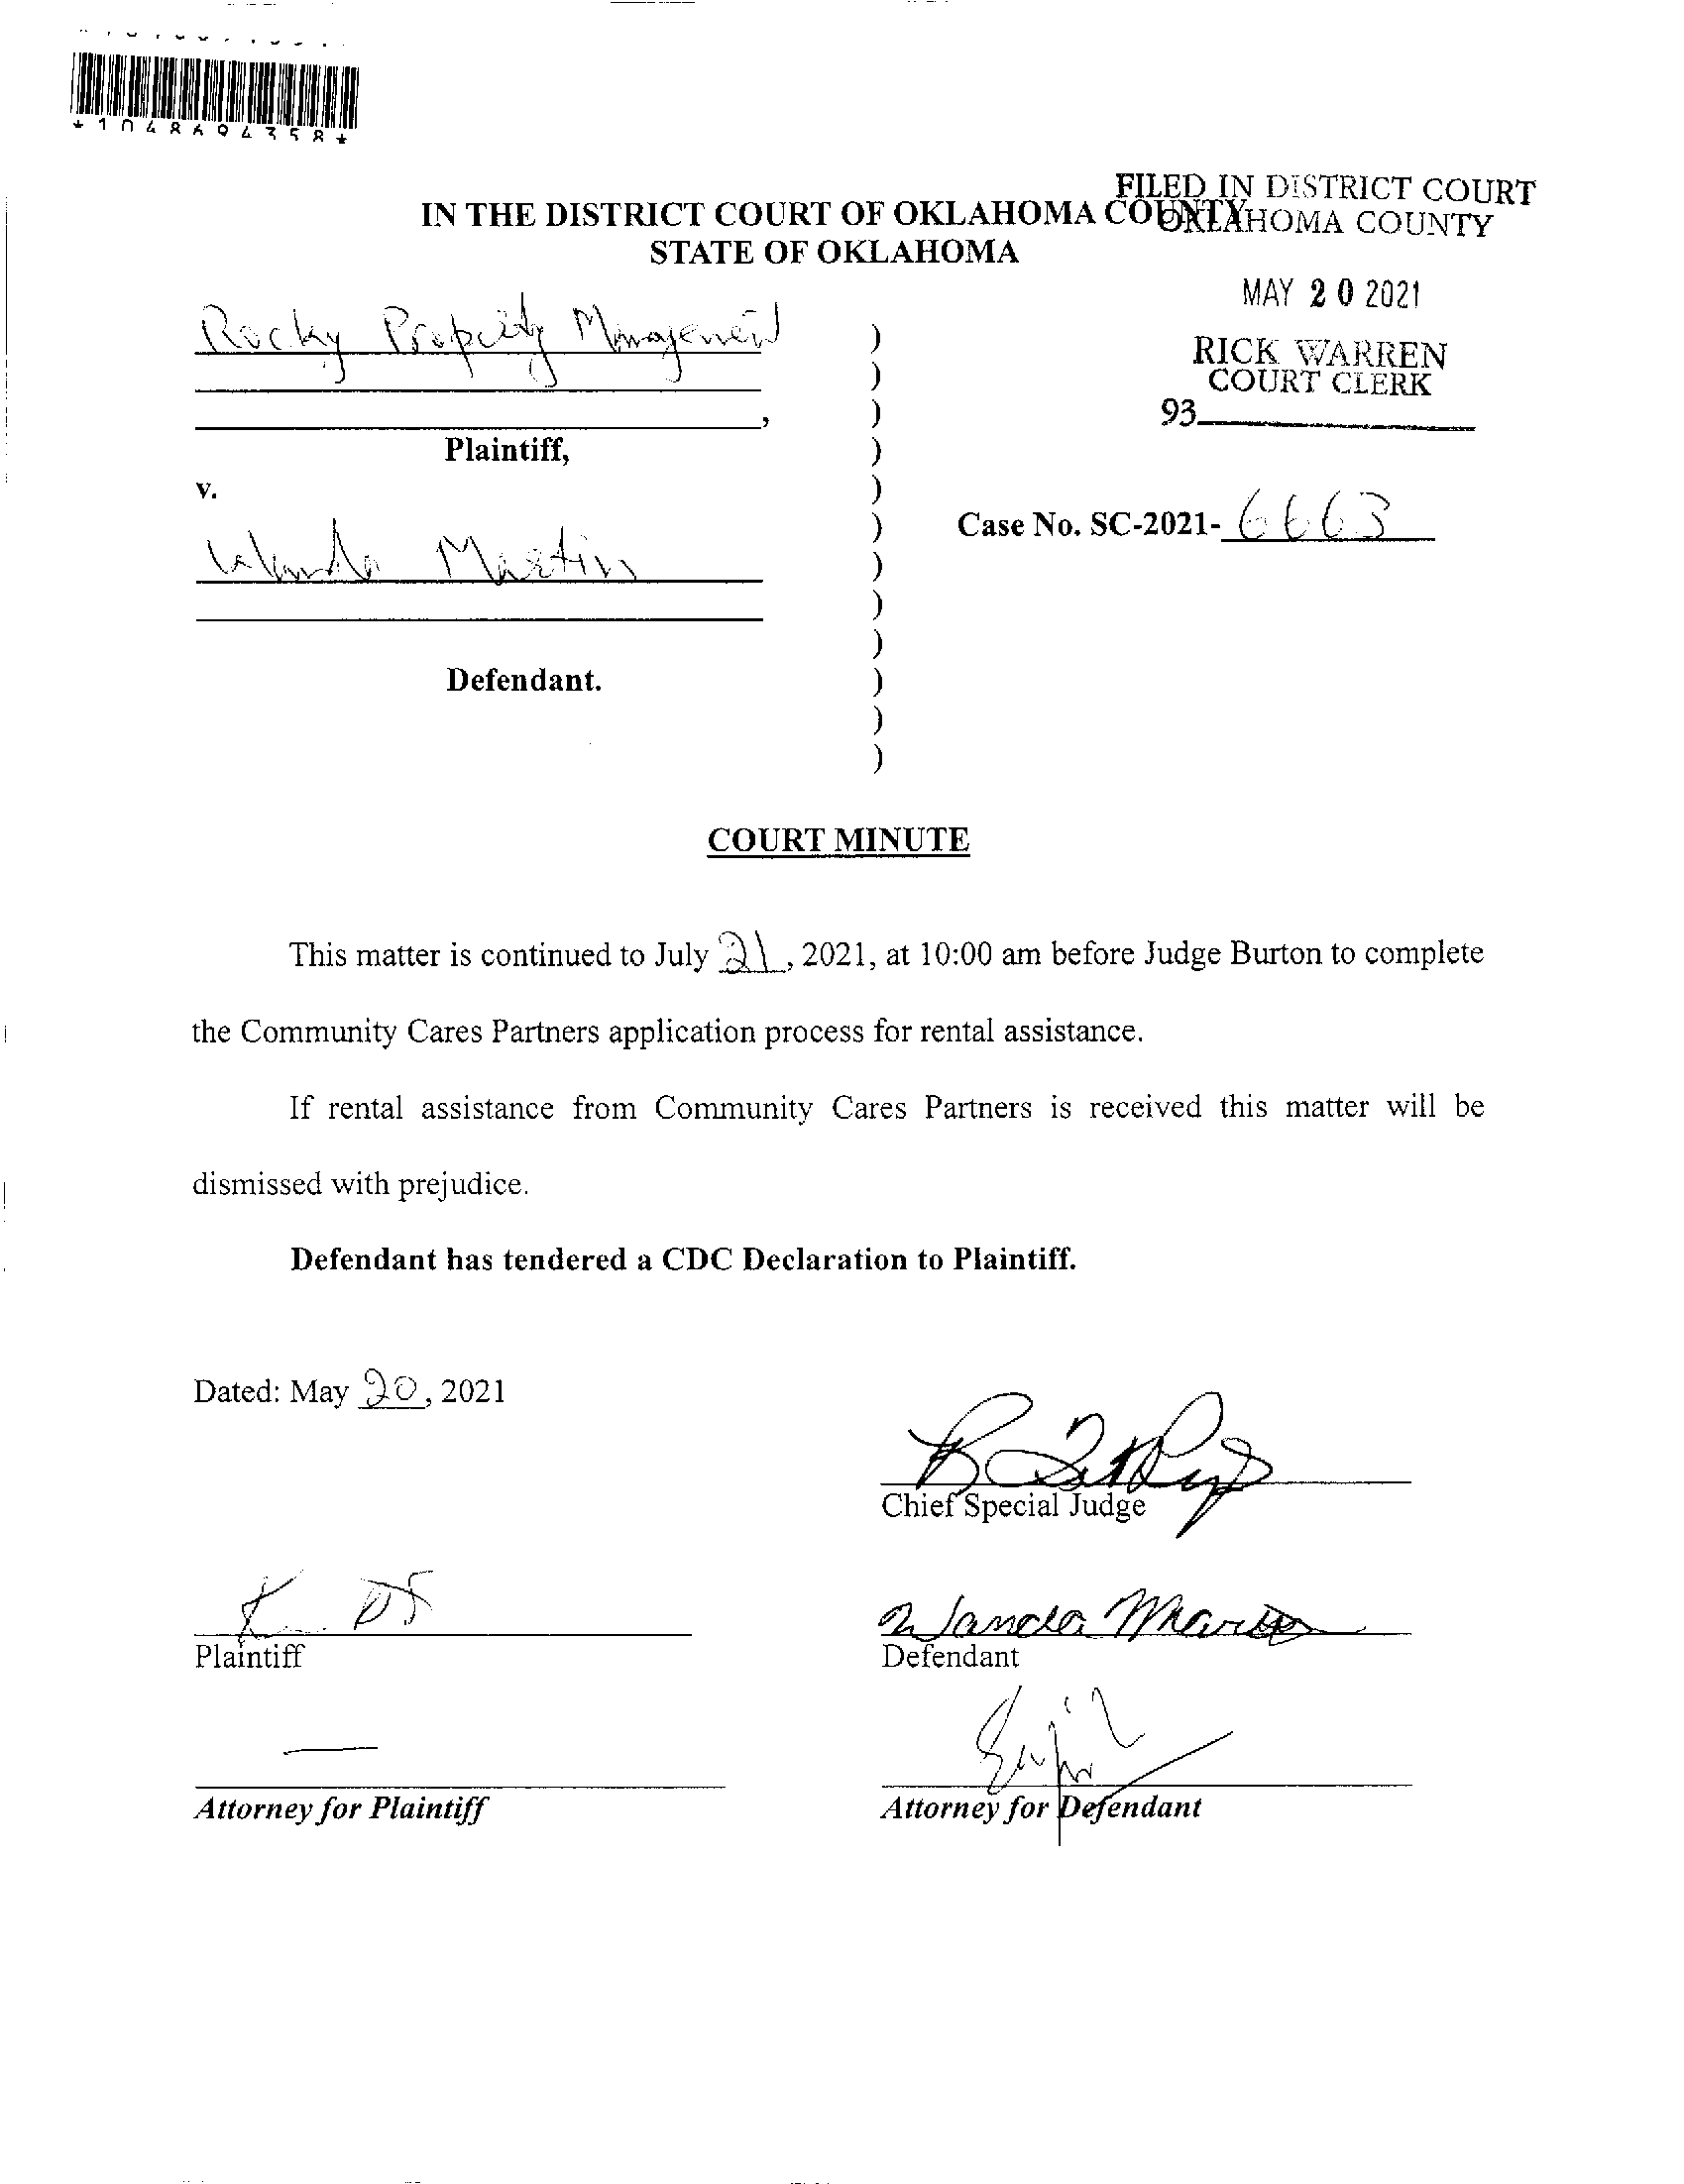 *1048694358*
FILED IN DISTRICT COURT
OKLAHOMA COUNTY
IN THE DISTRICT COURT OF OKLAHOMA COUNTY
STATE OF OKLAHOMA
MAY 20 2021
RICK WARREN
COURT CLERK
93
Rocky Property Management
)
)
)
,
Plaintiff,
)
v.
)
Case No. SC-2021-6663
)
Wanda Martin
)
)
)
Defendant.
)
)
)
COURT MINUTE
This matter is continued to July 21, 2021, at 10:00 am before Judge Burton to complete
the Community Cares Partners application process for rental assistance.
If rental assistance from Community Cares Partners is received this matter will be
dismissed with prejudice.
Defendant has tendered a CDC Declaration to Plaintiff.
Dated: May 20, 2021
Chief Special Judge
Wanda Martin
Plaintiff
Defendant
Attorney for Plaintiff
Attorney for Defendant